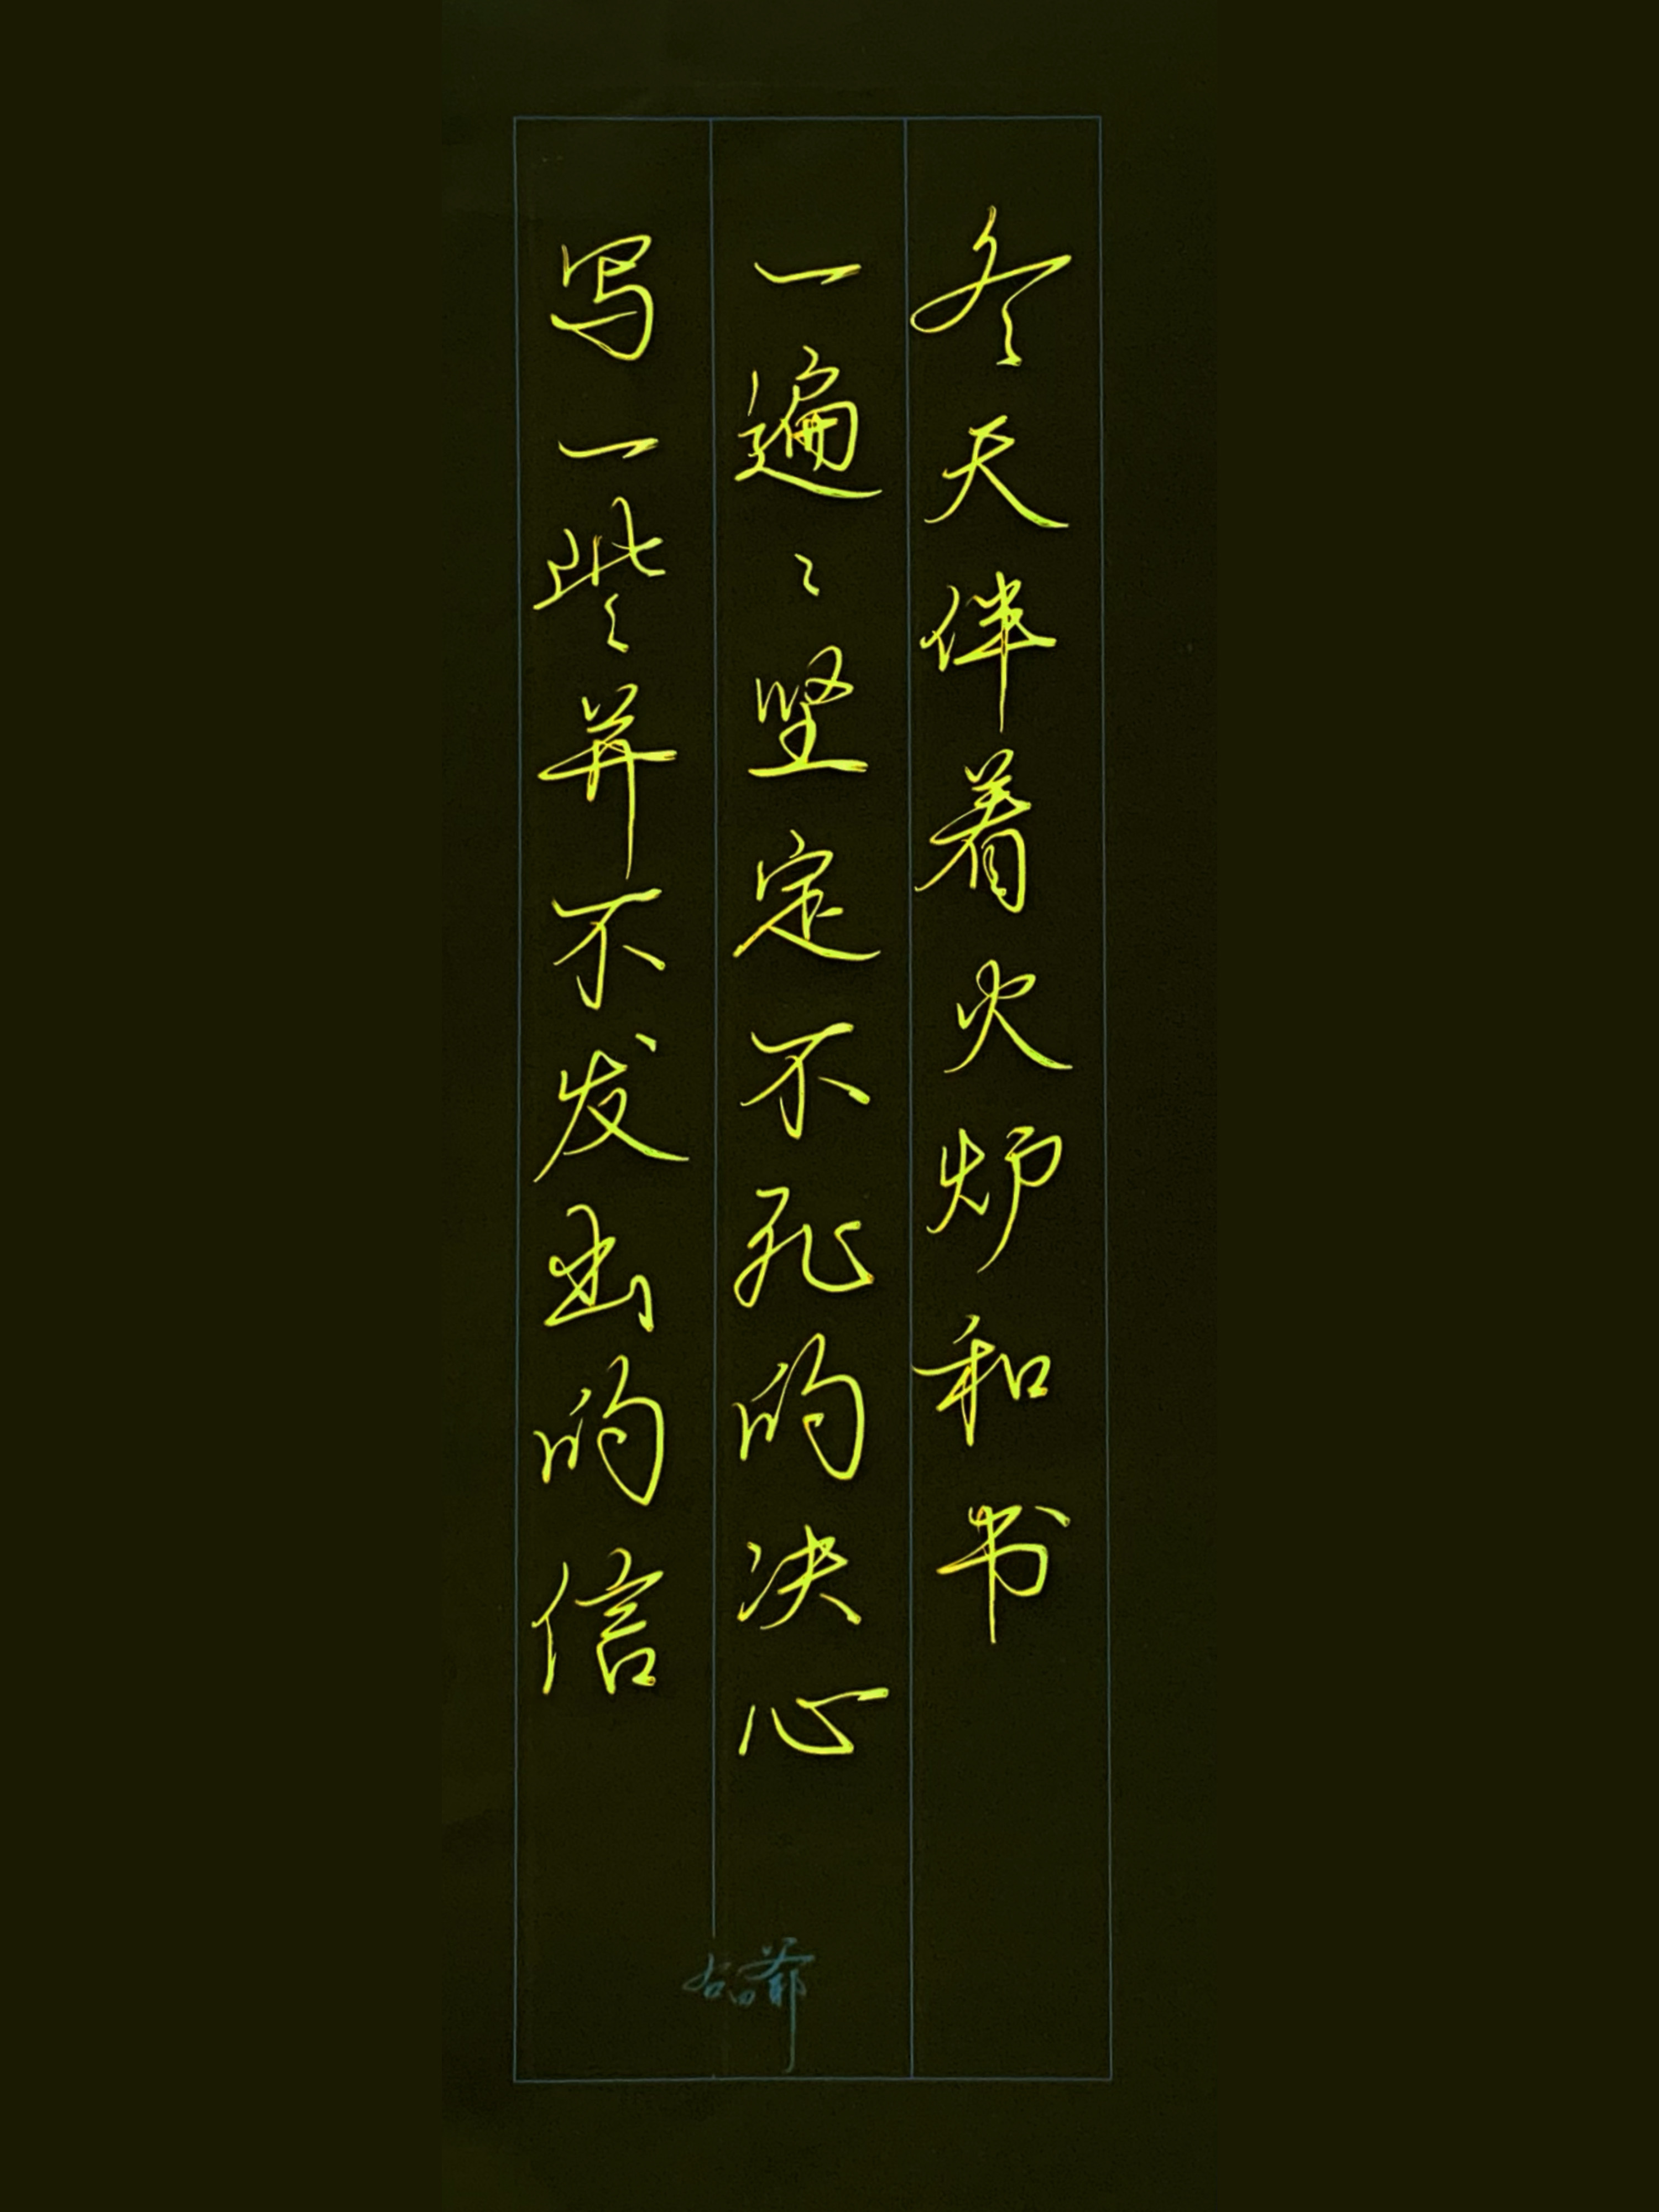 冬天伴着火炉和书
一遍〻坚定不死的决心
写一些并不发出的信